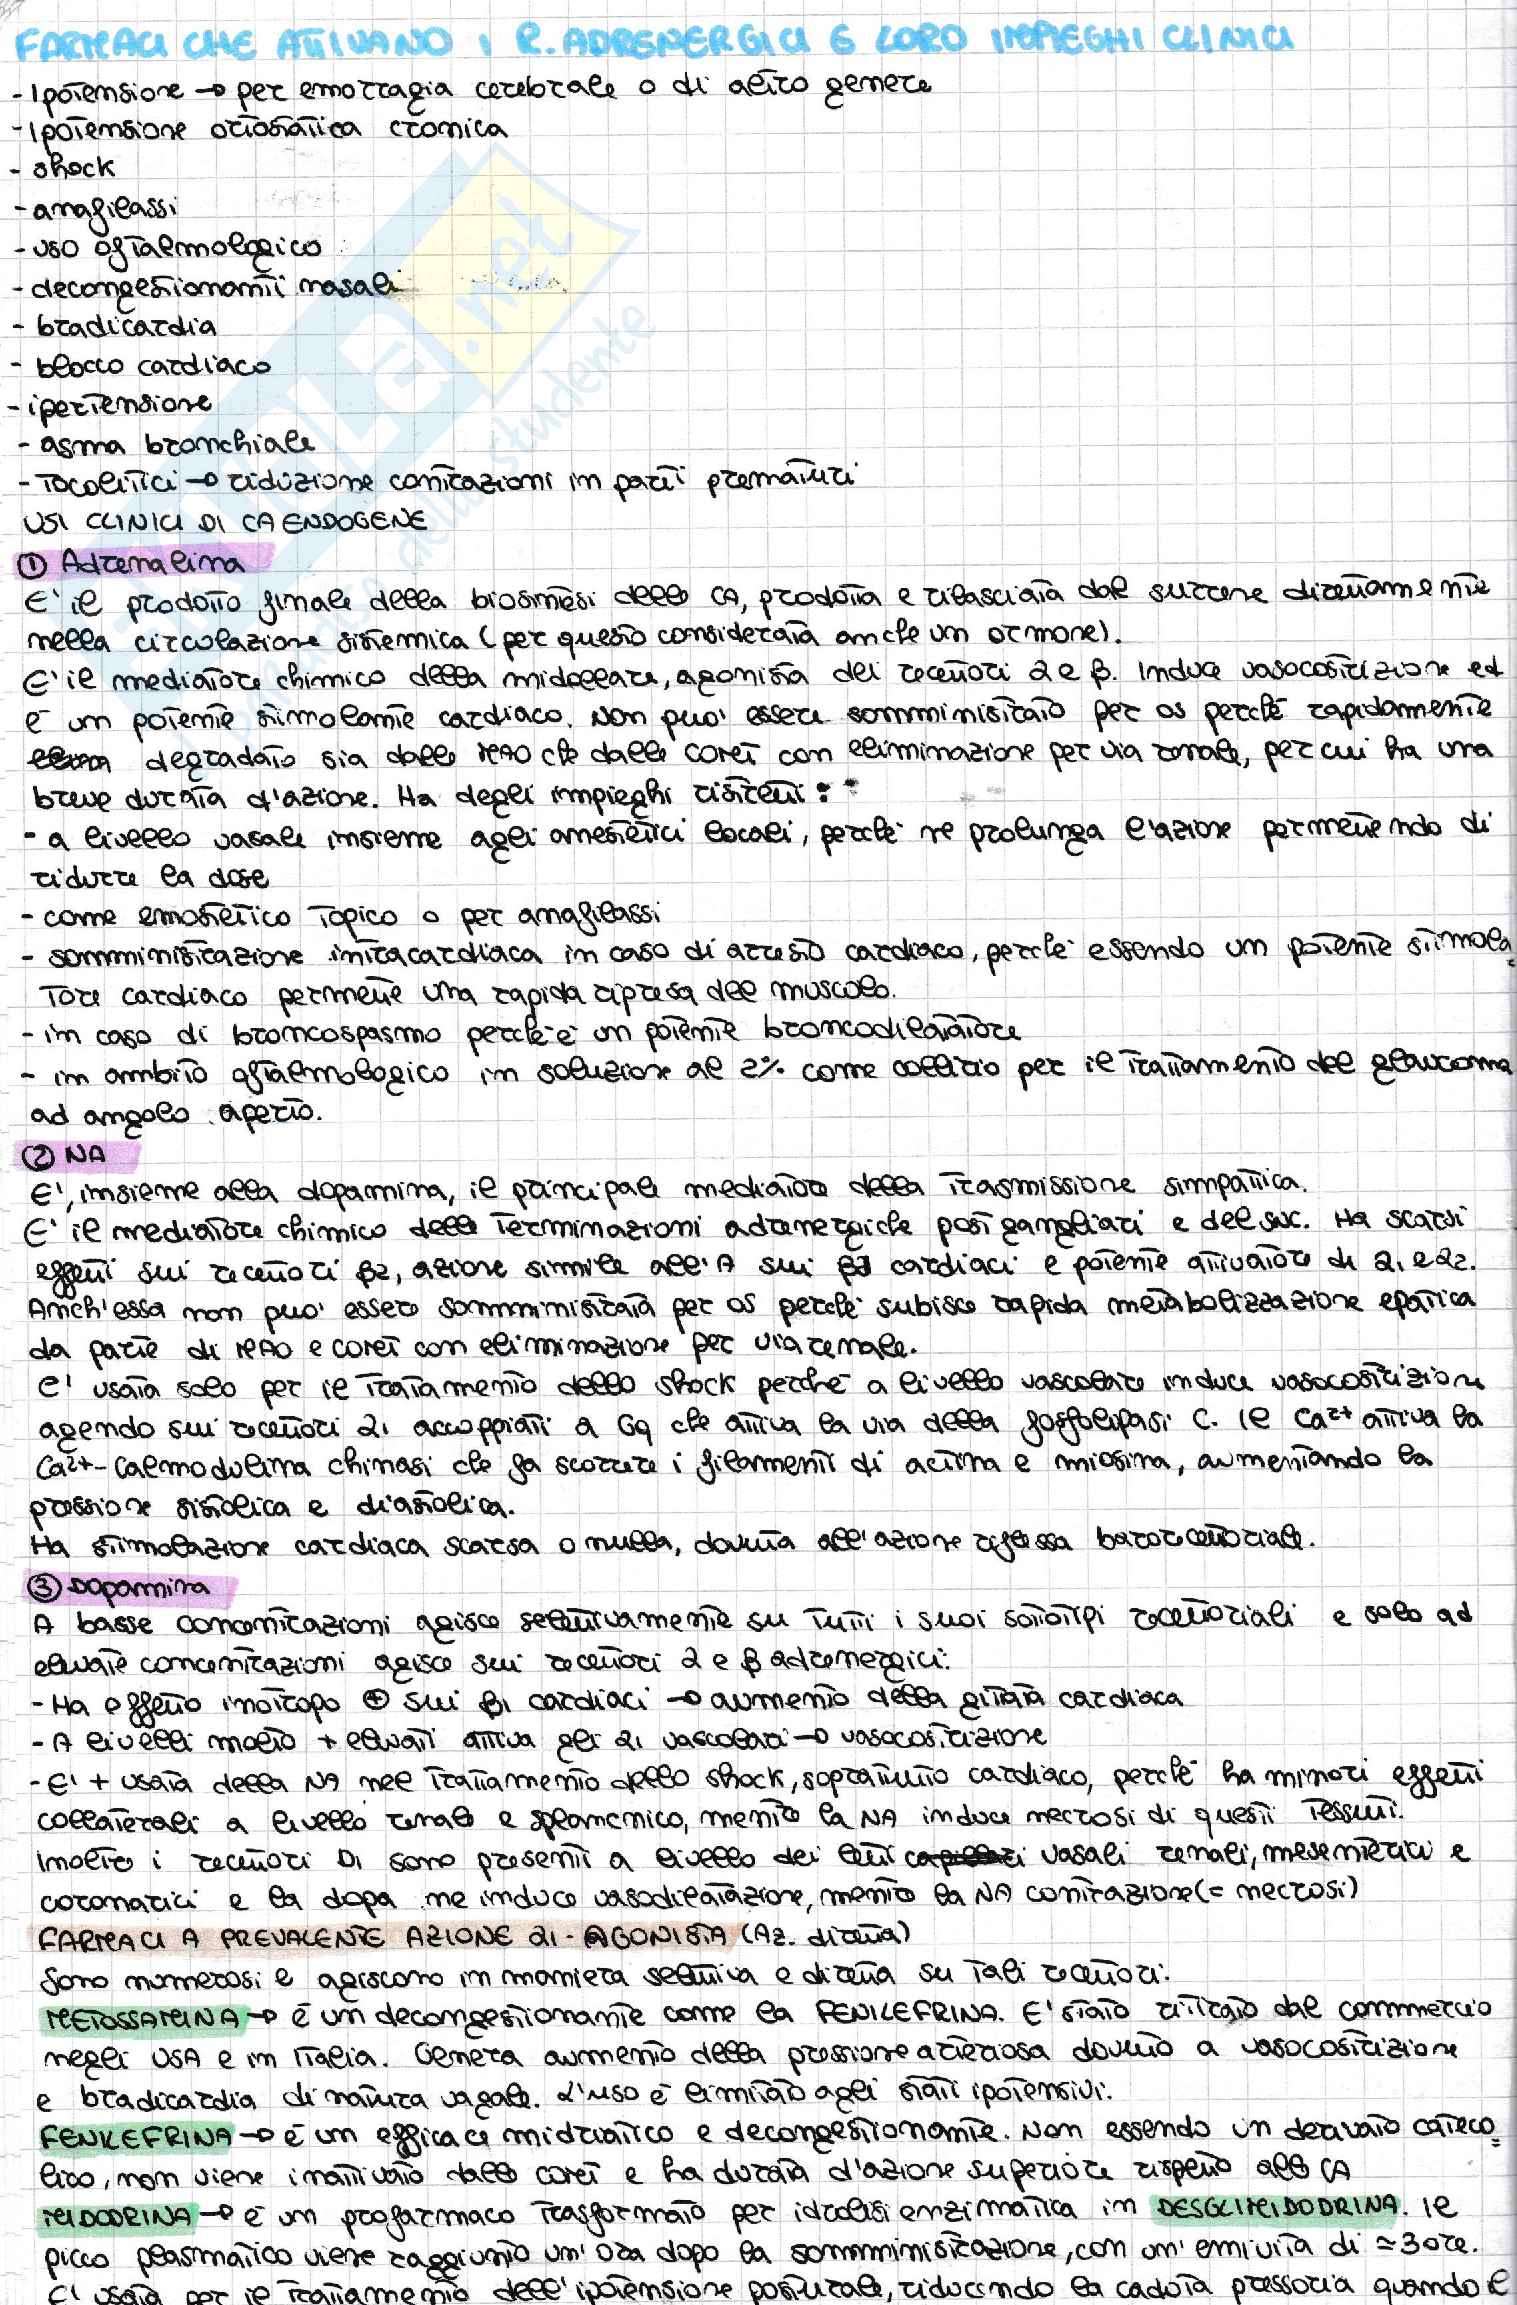 FARMACI CHE ATTIVANO I R. ADRENERGICI E LORO IMPIEGHI CLINICI
- Ipotensione → per emorragia cerebrale o di altro genere
- Ipotensione ortostatica cronica
- shock
- anafilassi
- uso oftalmologico
- decongestionanti nasali
- bradicardia
- blocco cardiaco
- ipertensione
- asma bronchiale
- Tocolitici → riduzione contrazioni in parti prematuri
USI CLINICI DI CA ENDOGENE
① Adrenalina
E' il prodotto finale della biosintesi delle CA, prodotta e rilasciata dal surrene direttamente
nella circolazione sistemica (per questo considerata anche un ormone).
E' il mediatore chimico della midollare, agonista dei recettori α e β. Induce vasocostrizione ed
è un potente stimolante cardiaco. Non può essere somministrato per os perchè rapidamente
degradato sia dalle MAO che dalle COMT con eliminazione per via renale, per cui ha una
breve durata d'azione. Ha degli impieghi ristretti:
- a livello vasale insieme agli anestetici locali, perchè ne prolunga l'azione permettendo di
ridurre la dose
- come emostatico topico o per anafilassi
- somministrazione intracardiaca in caso di arresto cardiaco, perchè essendo un potente stimola=
tore cardiaco permette una rapida ripresa del muscolo.
- in caso di broncospasmo perchè è un potente broncodilatatore
- in ambito oftalmologico in soluzione al 2% come collirio per il trattamento del glaucoma
ad angolo aperto.
② NA
E', insieme alla dopamina, il principale mediatore della trasmissione simpatica.
E' il mediatore chimico delle terminazioni adrenergiche postgangliari e del SNC. Ha scarsi
effetti sui recettori β2, azione simile all'A sui β1 cardiaci e potente attivatore di α1 e α2.
Anch'essa non può essere somministrata per os perchè subisce rapida metabolizzazione epatica
da parte di MAO e COMT con eliminazione per via renale.
E' usata solo per il trattamento dello shock perchè a livello vascolare induce vasocostrizione
agendo sui recettori α1 accoppiati a Gq che attiva la via della fosfolipasi C. Il Ca²⁺ attiva la
Ca²⁺-Calmodulina chinasi che fa scorrere i filamenti di actina e miosina, aumentando la
pressione sistolica e diastolica.
Ha stimolazione cardiaca scarsa o nulla, dovuta all'azione riflessa barorecettoriale.
③ Dopamina
A basse concentrazioni agisce selettivamente su tutti i suoi sottotipi recettoriali e solo ad
elevate concentrazioni agisce sui recettori α e β adrenergici:
- Ha effetto inotropo ⊕ sui β1 cardiaci → aumento della gittata cardiaca
- A livelli molto + elevati attiva gli α1 vascolari → vasocostrizione
- E' + usata della NA nel trattamento dello shock, soprattutto cardiaco, perchè ha minori effetti
collaterali a livello renale e splancnico, mentre la NA induce necrosi di questi tessuti.
Inoltre i recettori D1 sono presenti a livello dei letti vasali renali, mesenterici e
coronarici e la dopa ne induce vasodilatazione, mentre la NA contrazione (= necrosi)
FARMACI A PREVALENTE AZIONE α1 - AGONISTA (Az. diretta)
Sono numerosi e agiscono in maniera selettiva e diretta su tali recettori:
METOSSAMINA → è un decongestionante come la FENILEFRINA. E' stato ritirato dal commercio
negli USA e in Italia. Genera aumento della pressione arteriosa dovuto a vasocostrizione
e bradicardia di natura vagale. L'uso è limitato agli stati ipotensivi.
FENILEFRINA → è un efficace midriatico e decongestionante. Non essendo un derivato cateco=
lico, non viene inattivato dalle COMT e ha durata d'azione superiore rispetto alle CA
MIDODRINA → è un profarmaco trasformato per idrolisi enzimatica in DESGLIMIDODRINA. Il
picco plasmatico viene raggiunto un'ora dopo la somministrazione, con un'emivita di ≃ 3 ore.
E' usata per il trattamento dell'ipotensione posturale, riducendo la caduta pressoria quando il
.net
dello studente